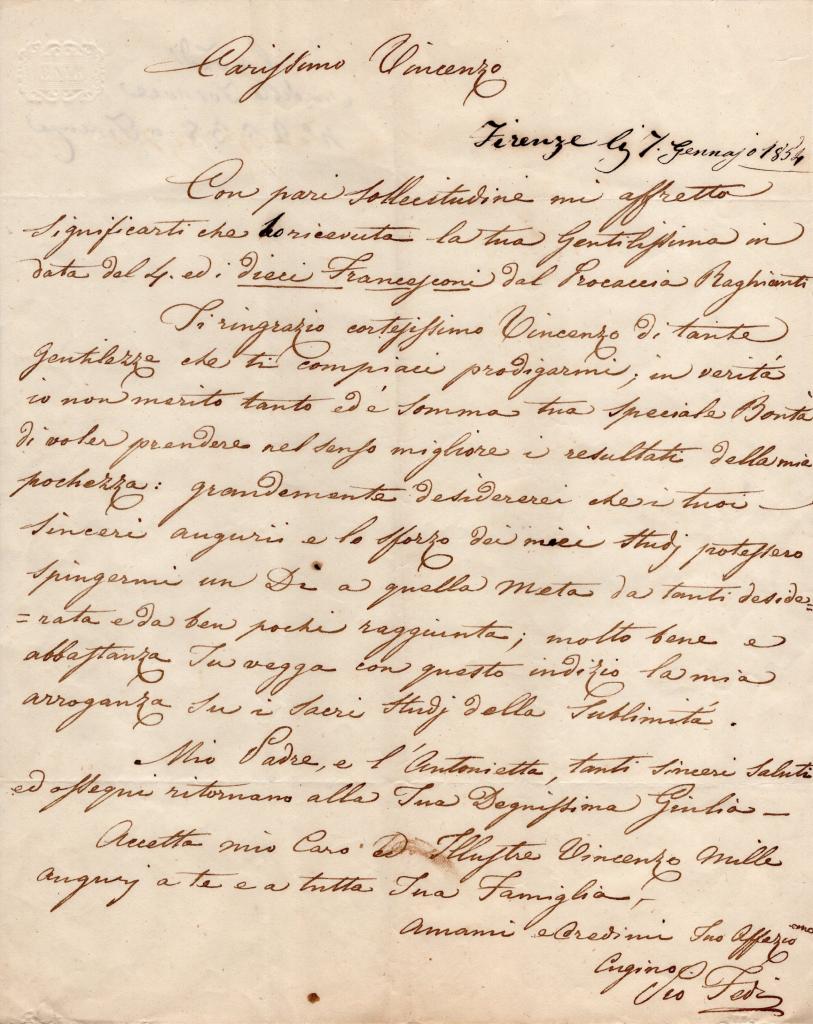 Carissimo Vincenzo
Firenze li 7. Gennajo 1854
Con pari sollecitudine mi affretto
significarti che ho ricevuta la tua Gentilissima in
data del 4. ed i dieci Francesconi dal Procaccia Raghianti
Ti ringrazio cortesissimo Vincenzo di tante
gentilezze che ti compiaci prodigarmi; in verità
io non merito tanto ed é somma tua speciale Bontà
di voler prendere nel senso migliore i resultati della mia
pochezza: grandemente desidererei che i tuoi
sinceri augurii e lo sforzo dei miei studj potessero
spingermi un Di a quella Meta da tanti deside=
=rata e da ben pochi raggiunta; molto bene e
abbastanza Tu vegga con questo indizio la mia
arroganza su i sacri studj della Sublimità.
Mio Padre, e l'Antonietta, tanti sinceri saluti
ed ossequi ritornano alla Tua Degnissima Giulia —
Accetta mio Caro ed Illustre Vincenzo Mille
augurj a te e a tutta Tua Famiglia,
Amami e Credimi Tuo Affezio.mo
Cugino
Pio Fedi